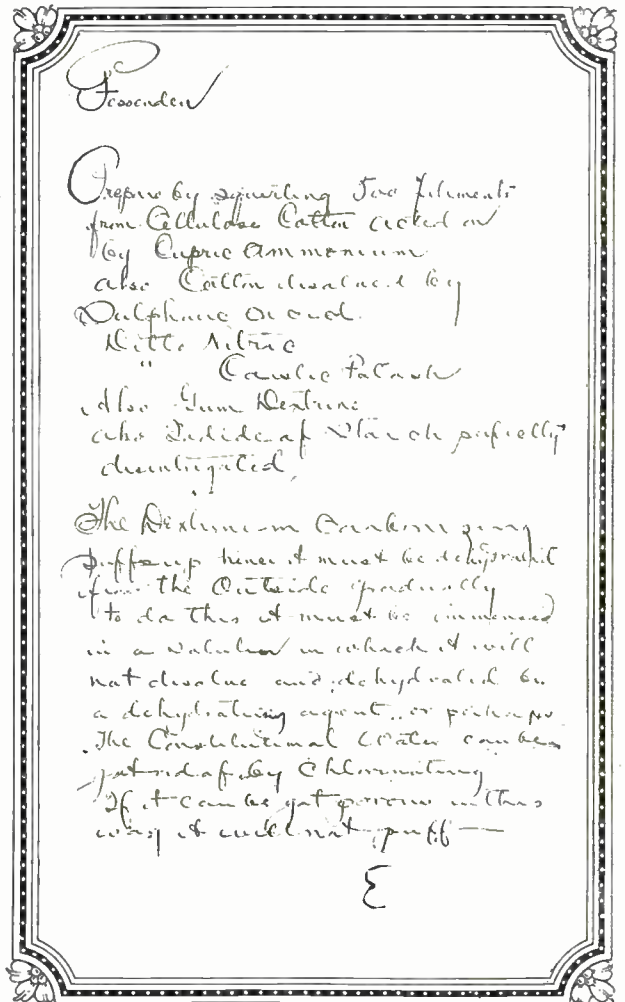 Fessenden
Prepare by squirting Two filiments
from Cellulose Cotton acted on
by Cupric Ammonium
also Cotton disolved by
Sulphuric acid.
Ditto Nitric
" Caustic Potash
Also Gum Dextrine
also Iodide of Starch partially
disintigrated,
The Dextrine in Carbonizing
puffs up hence it must be dehydrated
from the Outside gradually
to do this it must be immersed
in a solution in which it will
not disolve and dehydrated by
a dehydrating agent, or perhaps
The Constitutional Water can be
got rid of by Chlorinating
If it can be got porous in this
way it will not puff —
E